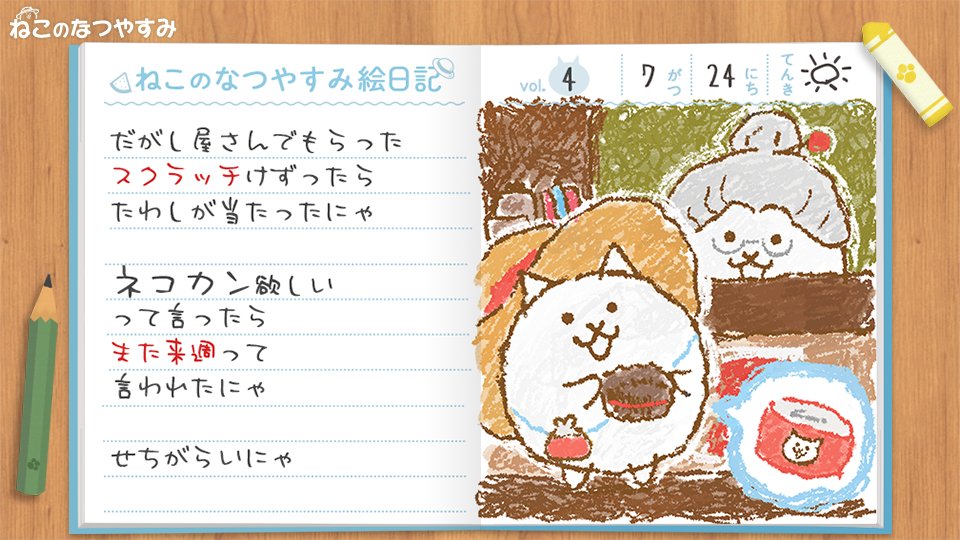 ねこのなつやすみ
ねこのなつやすみ絵日記
だがし屋さんでもらった
スクラッチけずったら
たわしが当たったにゃ
ネコカン欲しい
って言ったら
また来週って
言われたにゃ
せちがらいにゃ
vol. 4 7がつ 24にち てんき